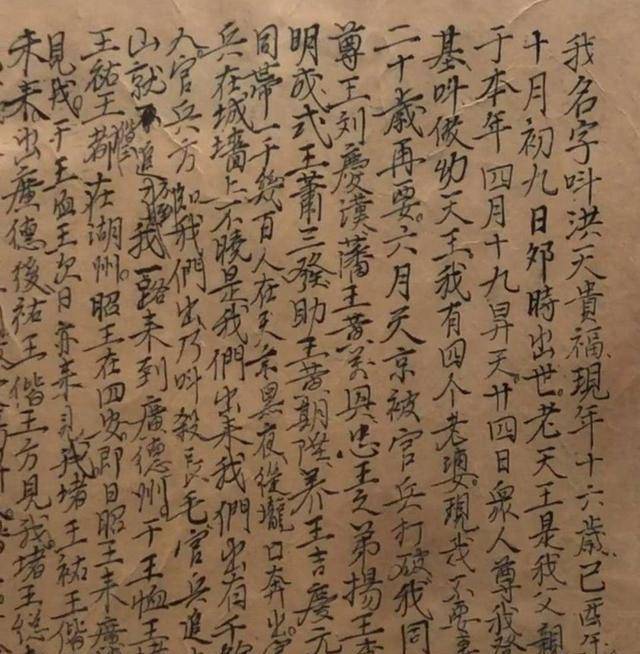 我名字呌洪天貴福現年十六歲己酉年
十月初九日夘時出世老天王是我父親
于本年四月十九昇天廿四日衆人尊我登
基呌做幼天王我有四个老婆現我不要
二十歲再要六月天京被官兵打破我同
尊王刘慶漢藩王黄 忠王之弟揚王李
明成式王萧三發助王黄期陞养王吉慶元
同帶一千幾百人在天京黑夜從壠口奔出官
兵在城墻上不曉是我們出來我們出有千餘
人官兵方 我們出乃呌殺長毛官兵追
山就不追 我一路來到廣德州干王恤王堵
王祐王都 在湖州昭王在四安即日昭王来廣
見我干王恤王次日亦来見我堵王祐王偕
未来出廣德後祐王偕王方見我堵王總